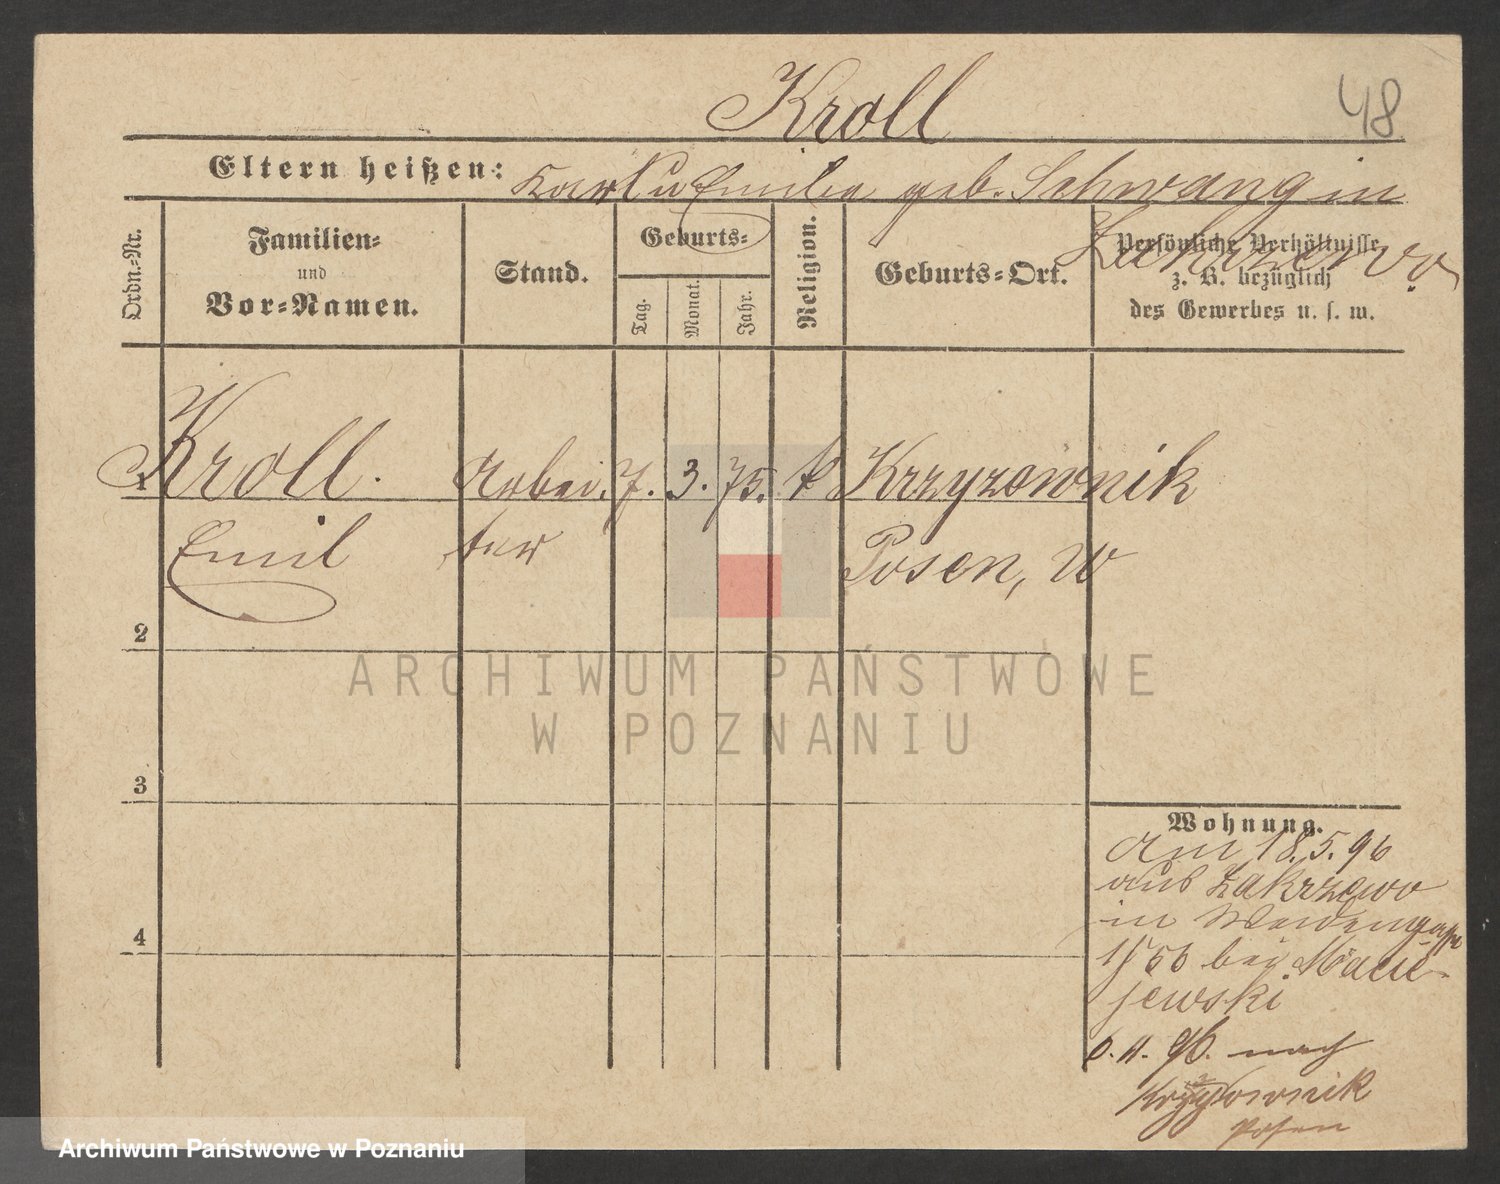 Kroll
48
Eltern heißen: Karl u Emilie geb. Schwang in
Zakrzewo
Ordn.-Nr.
Familien-
und
Vor-Namen.
Stand.
Geburts-
Tag.
Monat.
Jahr.
Religion.
Geburts-Ort.
Persönliche Verhältnisse
z. B. bezüglich
des Gewerbes u. s. w.
1 Kroll. Arbei- 7. 3. 75. k Krzyzownik
Emil ter Posen, W
2
3
4
Wohnung.
Am 18.5.96
aus Zakrzewo
in
bei Macie-
jewski
96. nach
Krzyzownik
Posen
ARCHIWUM PAŃSTWOWE
W POZNANIU
Archiwum Państwowe w Poznaniu